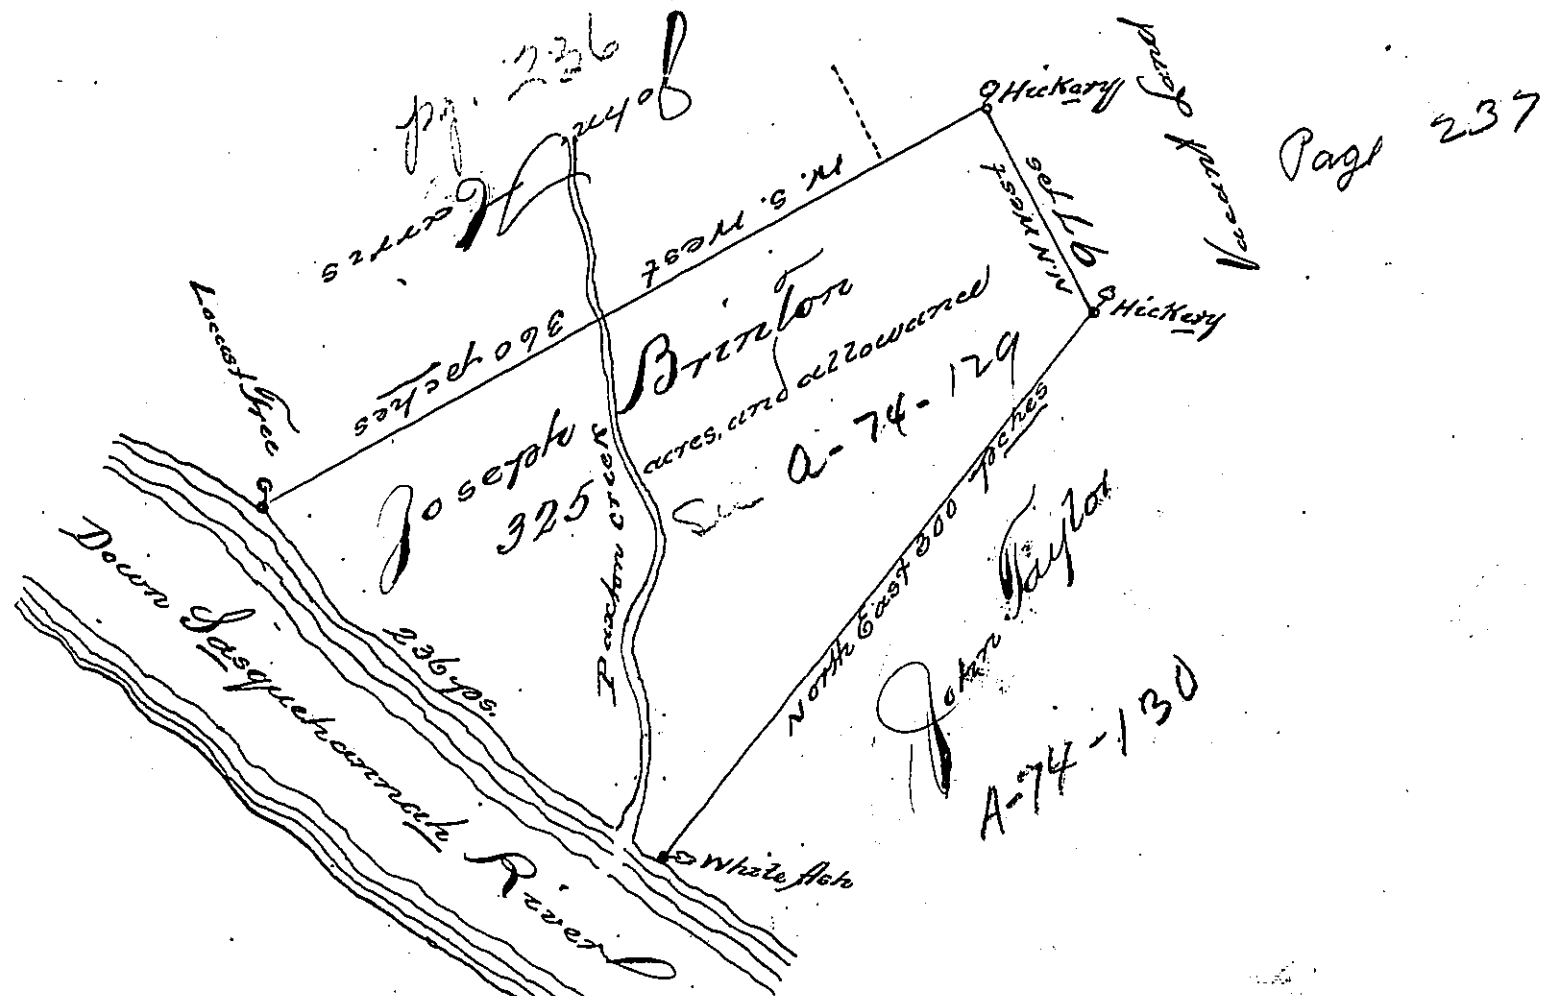 pg. 236
John
Harris
Hickary
Vaccant Land
Page 237
W. S. West
360 pches
N.N West
97 pes
Hickary
Loccust Tree
Joseph Brinton
325 acres, and allowance
See A-74-129
Paxton Creek
North East 300 pches
John Taylor
A-74-130
236 ps.
Down Sasquehannah River
White Ash